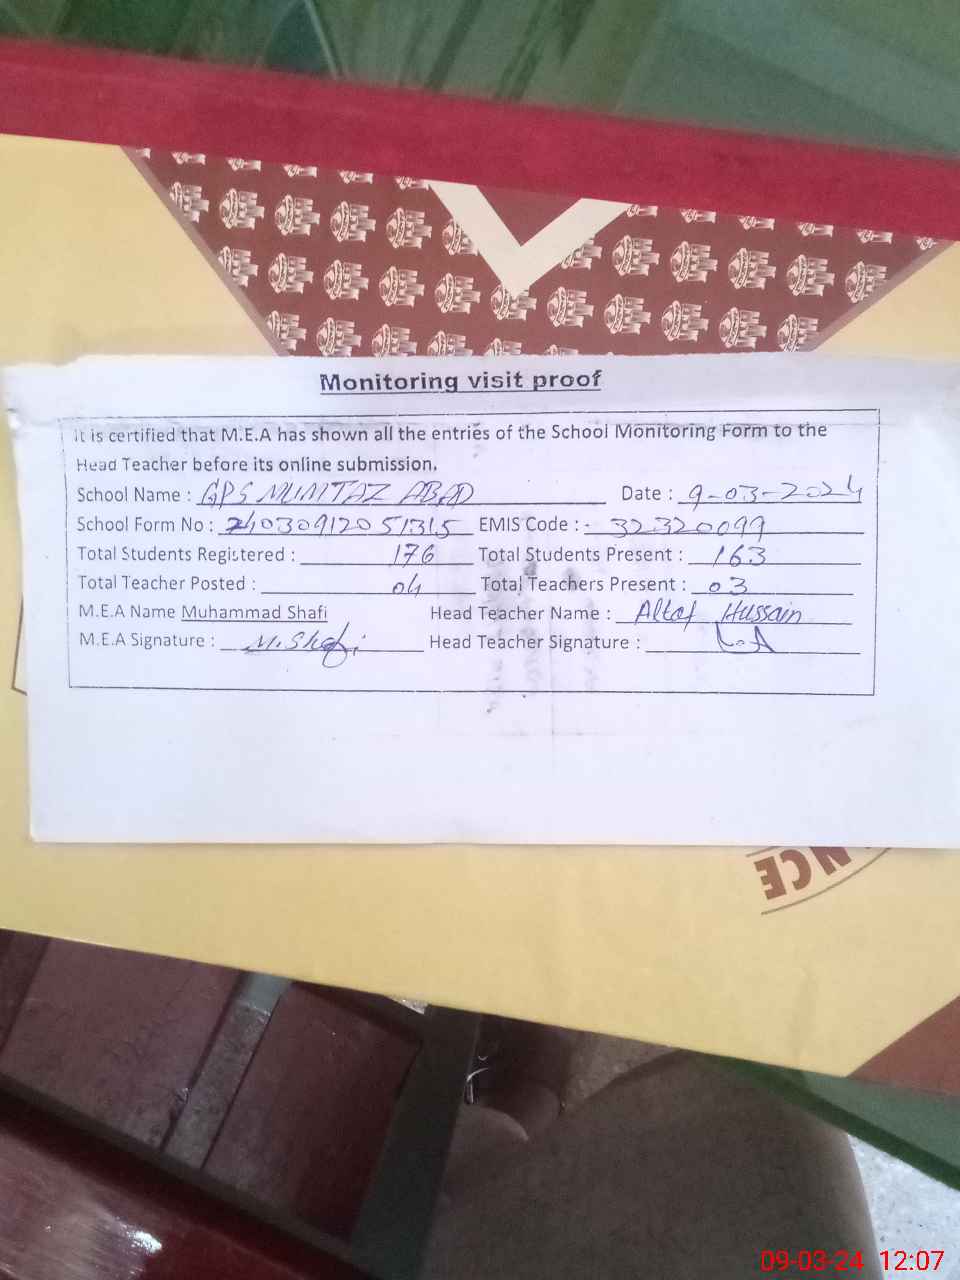 Monitoring visit proof
It is certified that M.E.A has shown all the entries of the School Monitoring Form to the
Head Teacher before its online submission.
School Name : GPS MUMTAZ ABAD Date : 9-03-2024
School Form No : 24030912051315 EMIS Code : - 32320099
Total Students Registered : 176 Total Students Present : 163
Total Teacher Posted : 04 Total Teachers Present : 03
M.E.A Name Muhammad Shafi Head Teacher Name : Altaf Hussain
M.E.A Signature : M.Shafi Head Teacher Signature :
NCE
09-03-24 12:07